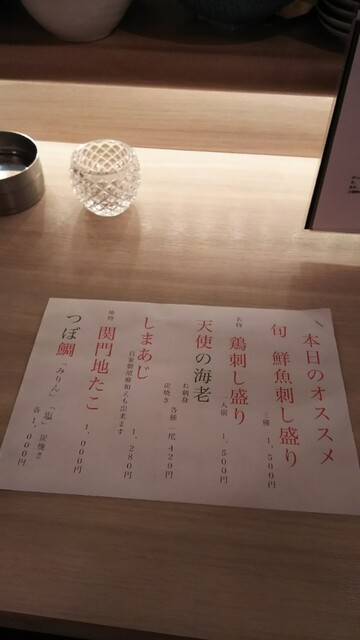 本日のオススメ
旬 鮮魚刺し盛り
三種 1,500円
名物 鶏刺し盛り
1,500円
天使の海老
お刺身
炭焼き 各種一尾420円
しまあじ
自家製胡麻和えも出来ます
1,280円
関門地たこ 1,000円
つぼ鯛「みりん」「塩」炭焼き
各1,000円